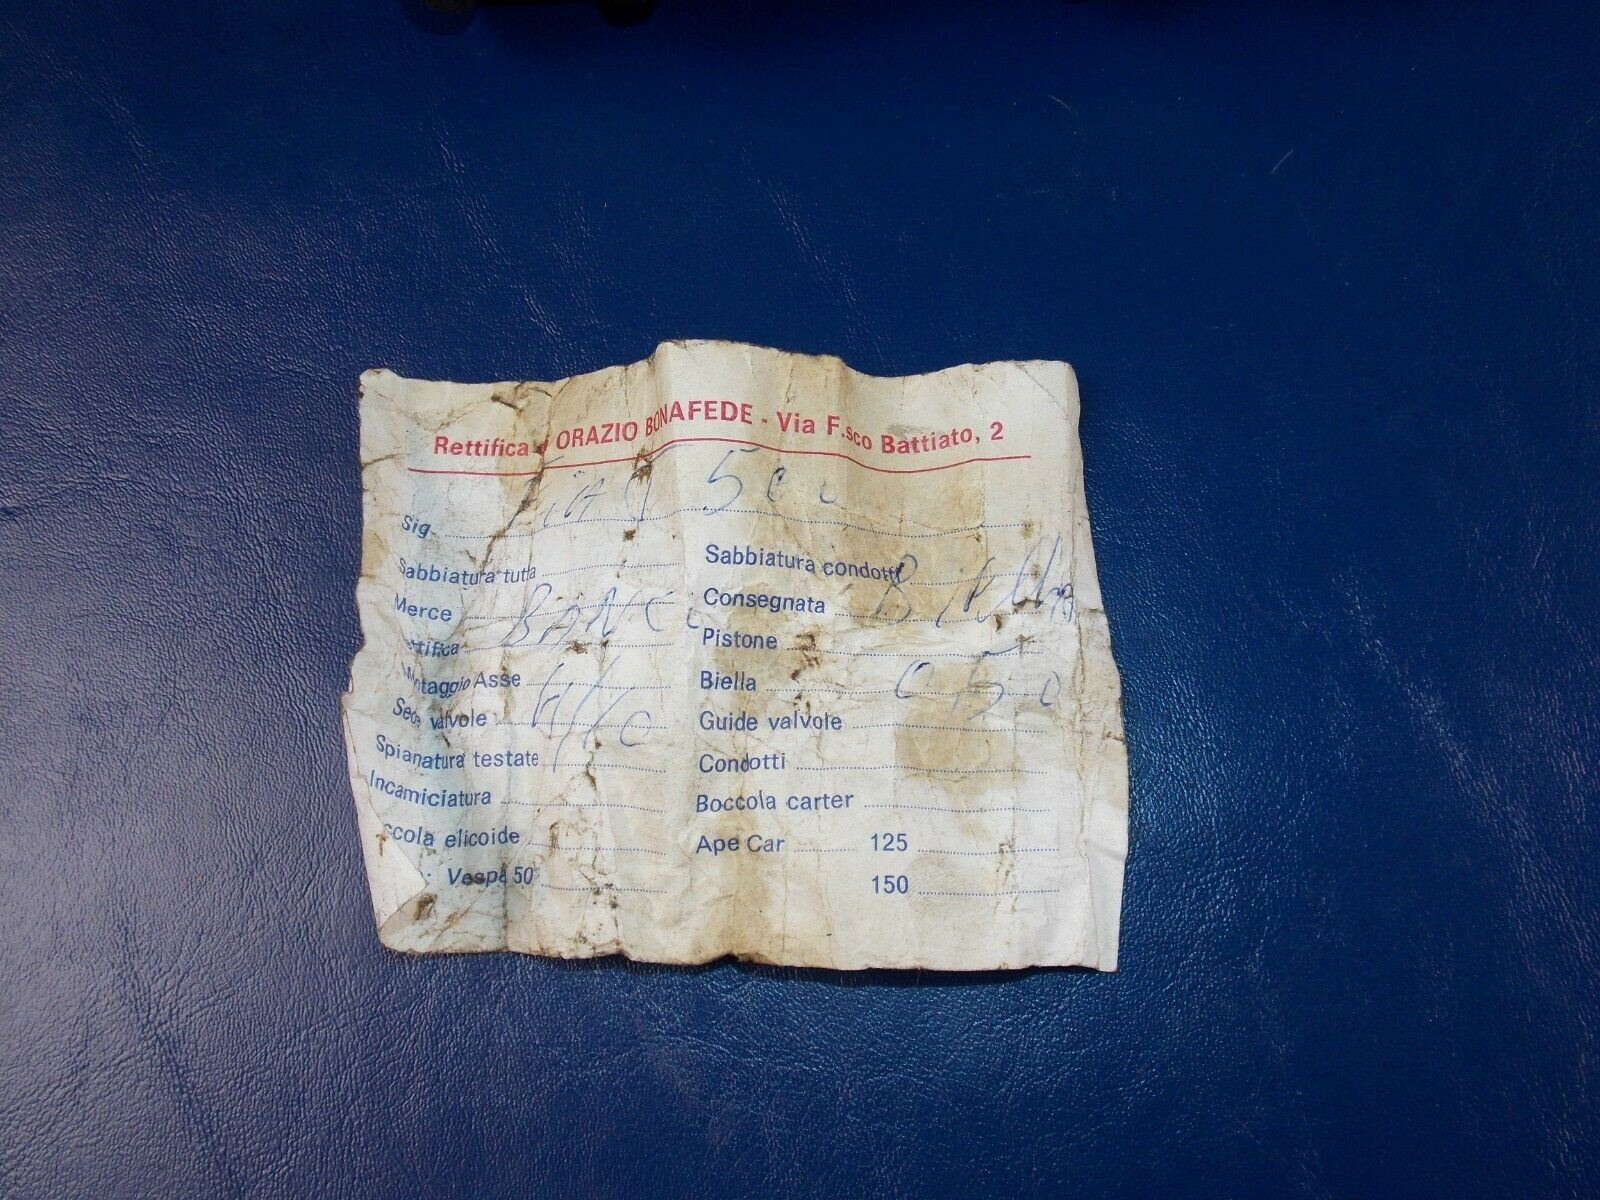 Rettifica ORAZIO BONAFEDE - Via F.sco Battiato, 2
Sig. FIAT 500
Sabbiatura tutta
Sabbiatura condotti
Merce BANCO
Consegnata Biella
Pistone
Montaggio Asse
Biella 050
Sede valvole
Guide valvole
Spianatura testate
Condotti
Incamiciatura
Boccola carter
ccola elicoide
Ape Car 125
Vespa 50
150